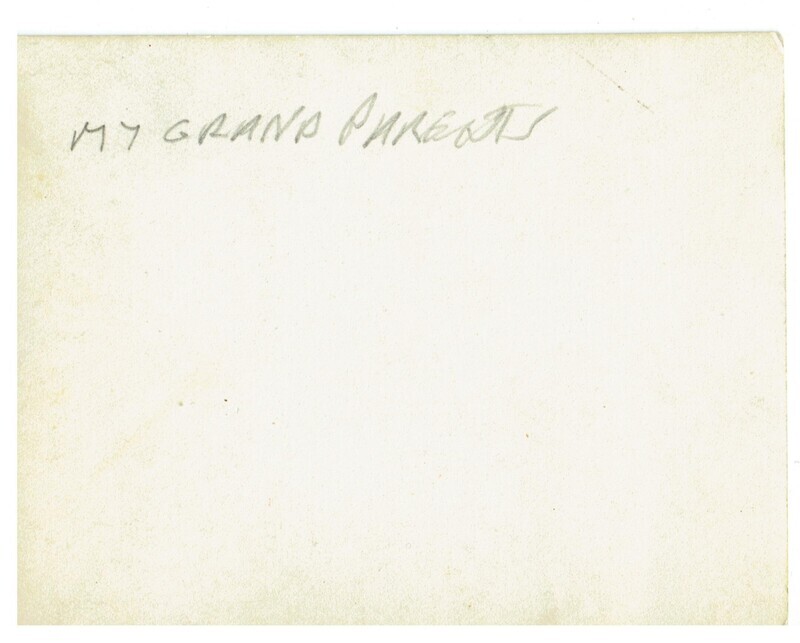 MY GRAND PARENTS